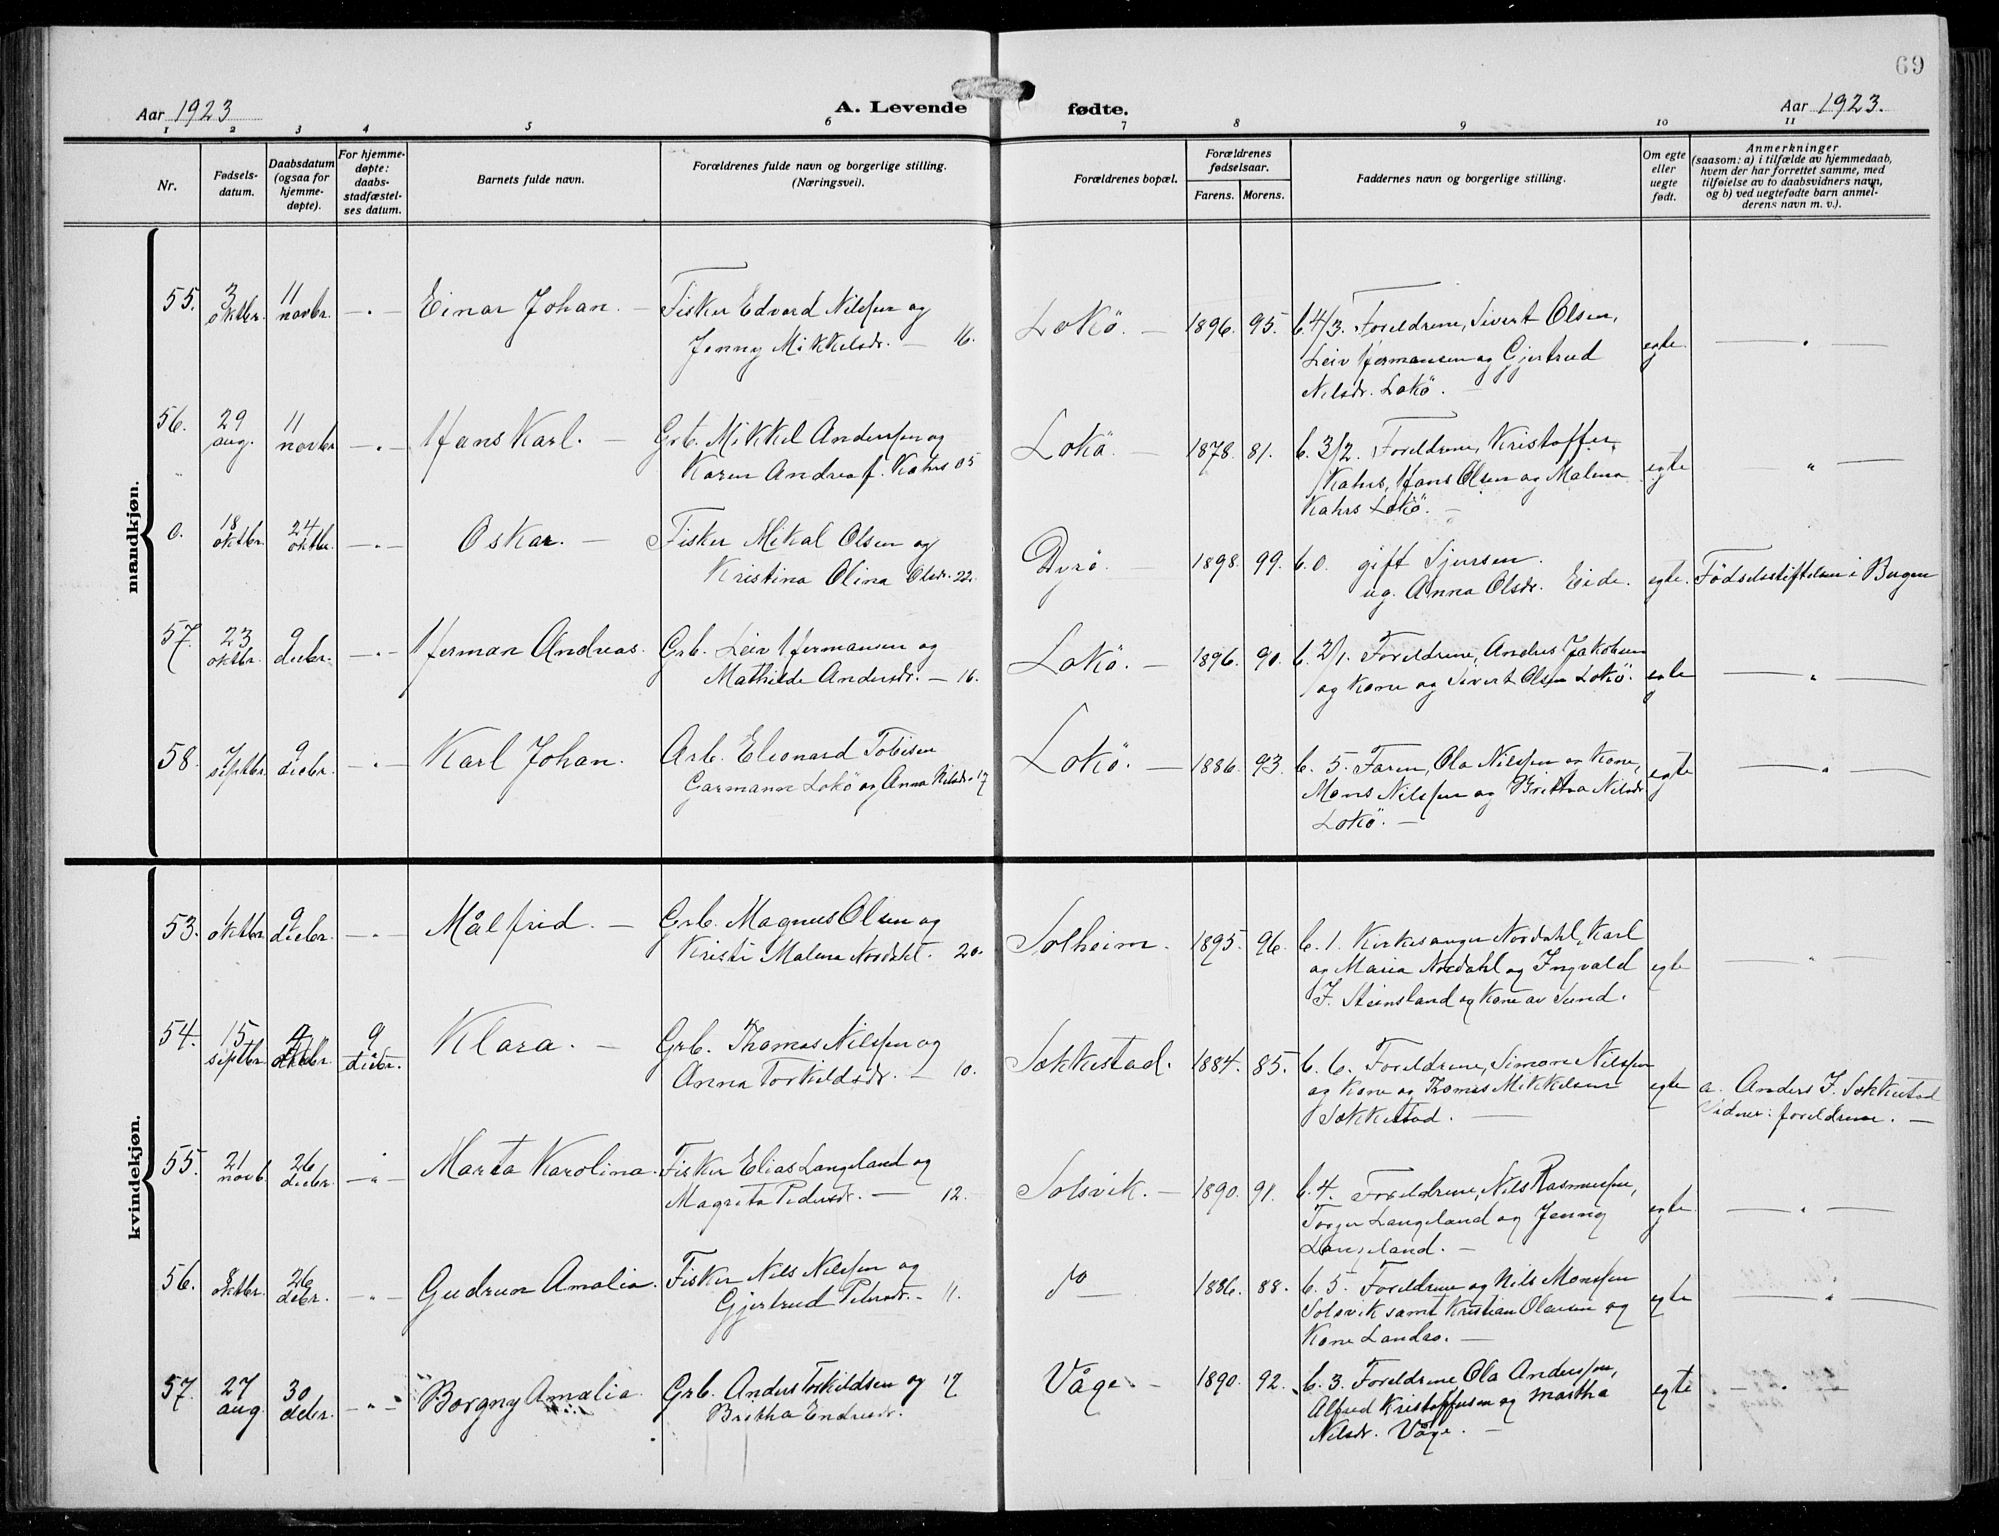 69
Aar 1923
A. Levende fødte.
Aar 1923.
1 2 3 4 5 6 7 8 9 10 11
Nr.
Fødsels-
datum.
Daabsdatum
(ogsaa for
hjemme-
døpte).
For hjemme-
døpte:
daabs-
stadfæstel-
ses datum.
Barnets fulde navn.
Forældrenes fulde navn og borgerlige stilling.
(Næringsvei).
Forældrenes bopæl.
Forældrenes
fødselsaar.
Farens. Morens.
Faddernes navn og borgerlige stilling.
Om egte
eller
uegte
født.
Anmerkninger
(saasom: a) i tilfælde av hjemmedaab,
hvem der har forrettet samme, med
tilføielse av to daabsvidners navn,
og b) ved uegtefødte barn anmel-
derens navn m. v.).
mandkjøn.
55. 3 oktbr. 11 novbr. — " — Einar Johan. — Fisker Edvard Nilssen og
Jenny Mikkelsdr. — 16.
Lokö. — 1896. 95. b. 4/3. Foreldrene, Sivert Olsen,
Leiv Hermansen og Gjertrud
Nilsdr. Lokö. —
egte. — " —
56. 29 aug. 11 novbr — " — Hans Karl. — Grb. Mikkel Anderssen og
Karen Andrea f. Kahrs 05
Lokö. — 1878. 81. b. 3/2. Foreldrene, Kristoffer
Kahrs, Hans Olsen og Malena
Kahrs Lokö. —
egte " —
0. 18 oktbr. 24 oktbr. — " — Oskar. — Fisker Mikal Olsen og
Kristina Olina Olsdr. 22.
Dyrö. — 1898. 99. b. 0. gift Sjursen.
ug. Anna Olsdr. Eide.
egte. Födselsstiftelsen i Bergen
57. 23 oktbr. 9 decbr. — " — Herman Andreas. Grb. Leiv Hermansen og
Mathilde Andersdr. — 16.
Lokö. — 1896. 90. b. 2/1. Foreldrene, Anders Jakobsen
og Kone og Sivert Olsen Lokö.
egte — " —
58. 7 septbr. 9 decbr. — " — Karl Johan. Arb. Eleonard Tobisen
Garmann Lokö og Anna Nilsdr. 17
Lokö. — 1886. 93. b. 5. Faren, Ola Nilssen og Kone,
Mons Nilssen og Brittha Nilsdr
Lokö. —
egte — " —
kvindekjøn.
53. 1 oktbr 9 decbr. — " — Målfrid. — Grb. Magnus Olsen og
Kristi Malena Nordahl. 20.
Solheim. 1895. 96. b. 1. Kirkesanger Nordahl, Karl
og Maria Nordahl og Ingvald
J. Steinsland og Kone av Sund.
egte — " —
54. 15 septbr 4 oktbr 9 decbr. Klara. — Grb. Thomas Nilssen og
Anna Torkildsdr. — 10.
Sækkestad. 1884. 85. b. 6. Foreldrene, Simon Nilssen
og Kone og Thomas Mikkelsen
Sækkestad. —
egte a. Anders J. Sækkestad
Vidner: foreldrene. —
55. 21 novb. 26 decbr. — " — Marta Karolina. Fisker Elias Langeland og
Magreta Pedersdr. — 12.
Solsvik. — 1890. 91. b. 4. Foreldrene, Nils Rasmussen,
Torger Langeland og Jenny
Langeland. —
egte. — " —
56. 8 oktbr. 26 decbr. — " — Gudrun Amalia. Fisker Nils Nilssen og
Gjertrud Petersdr. — 11.
do — 1886. 88. b. 5. Foreldrene og Nils Monssen
Solsvik samt Kristian Olausen og
Kone Landro. —
egte — " —
57. 27 aug. 30 decbr. — " — Borgny Amalia. Grb. Anders Torkildsen og 17
Britha Endresdr.
Våge. — 1890. 92. b. 3. Foreldrene Ola Anderssen,
Alfred Kristoffersen og Martha
Nilsdr. Våge. —
egte — " —